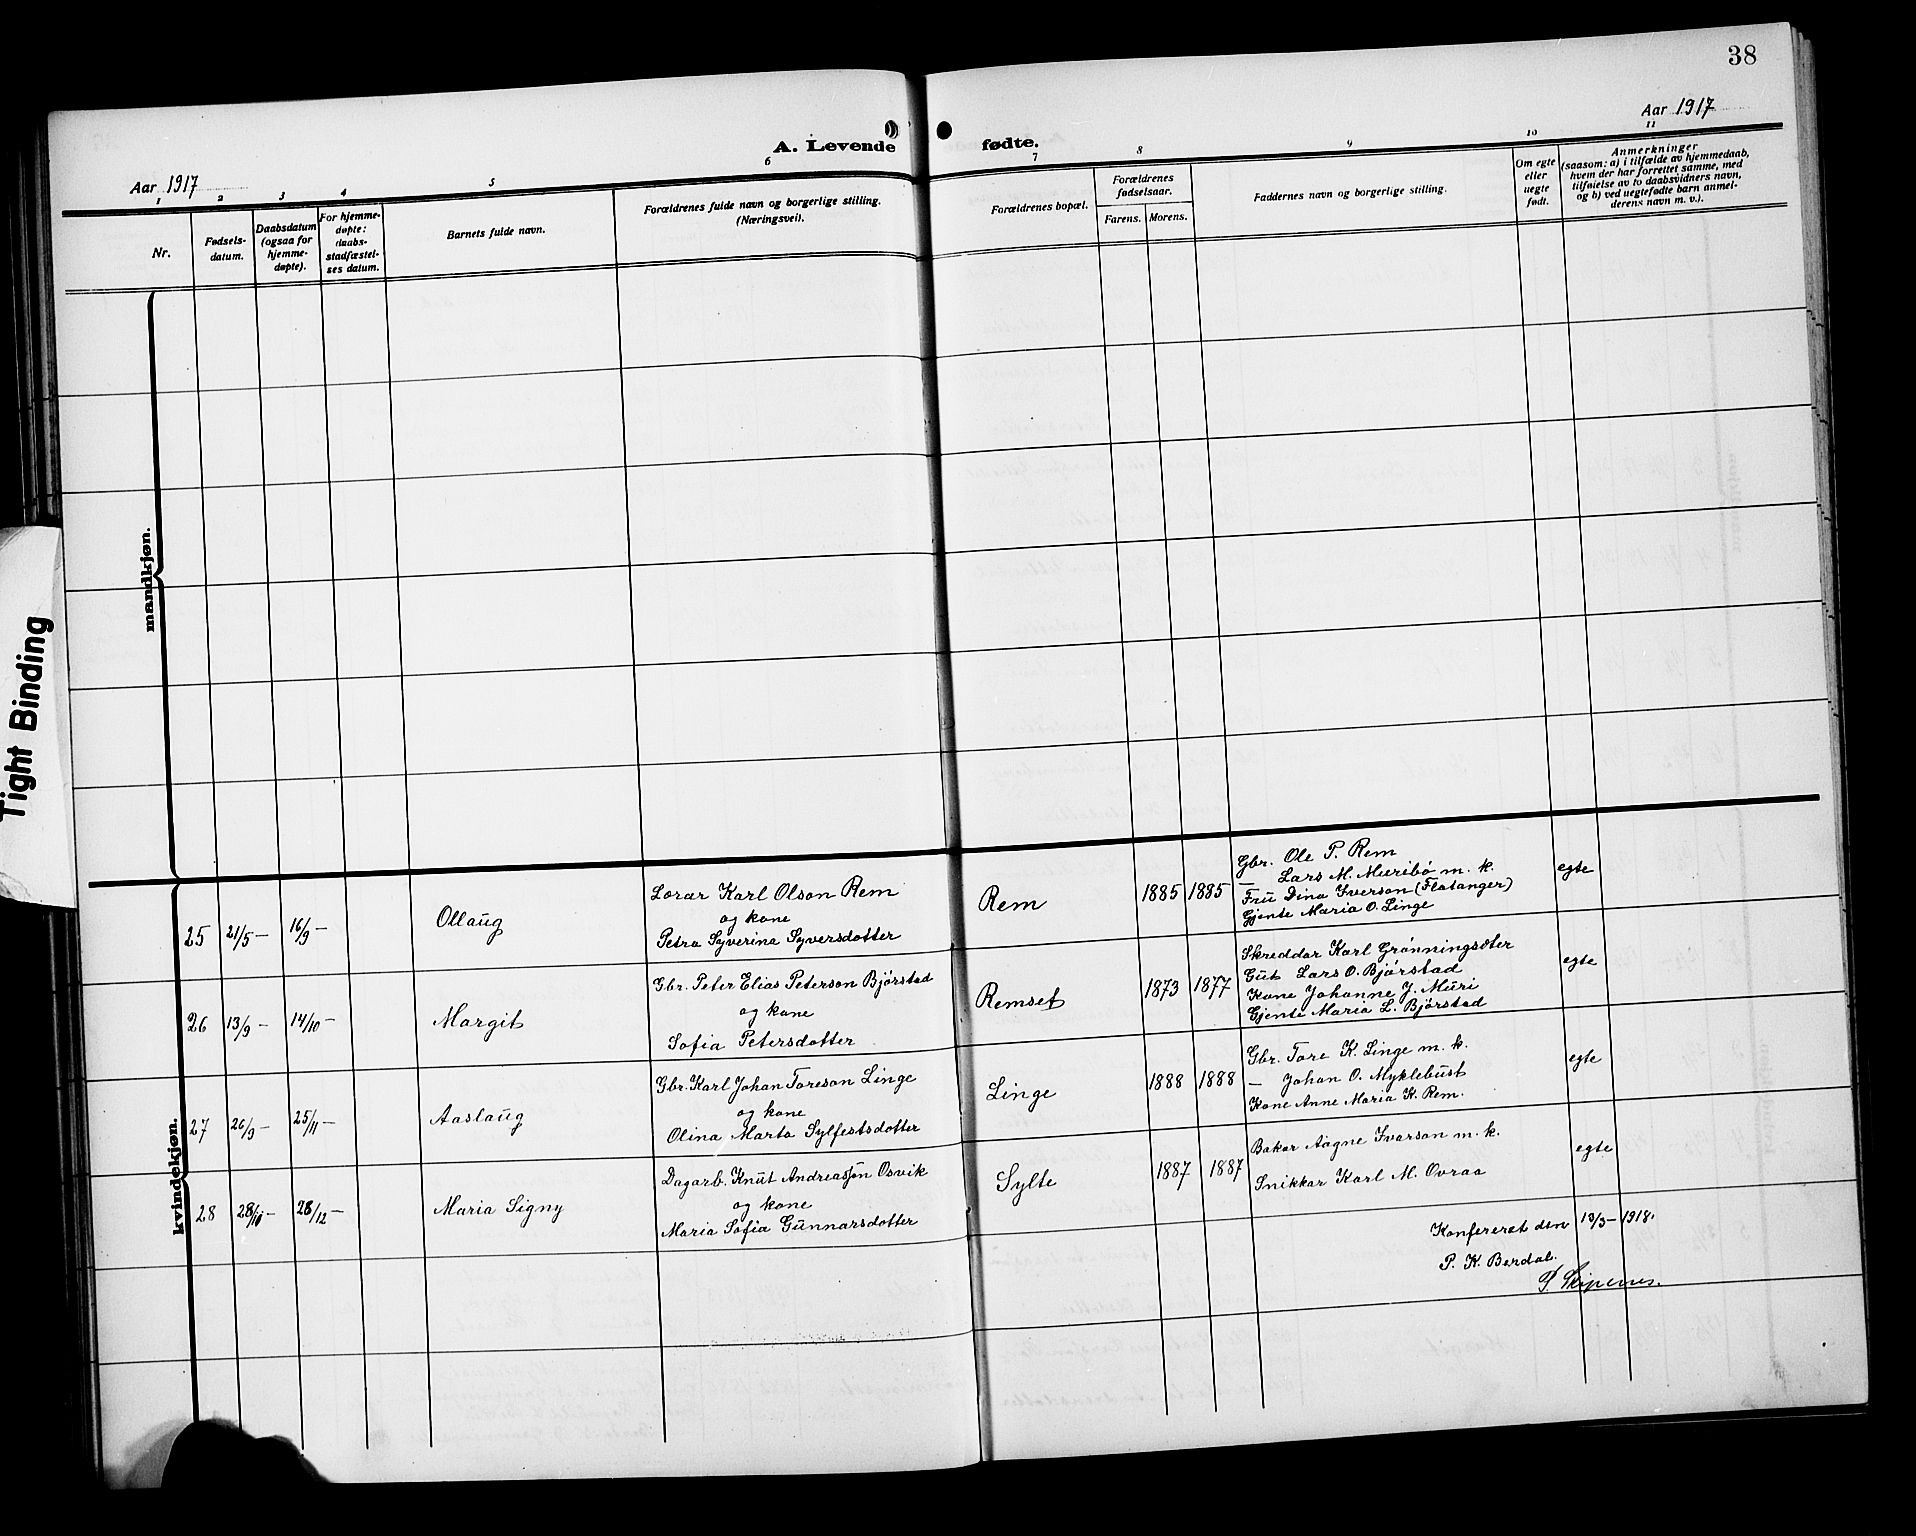 38
Aar 1917
Aar 1917
A. Levende fødte.
1 2 3 4 5 6 7 8 9 10 11
Nr.
Fødsels-
datum.
Daabsdatum
(ogsaa for
hjemme-
døpte).
For hjemme-
døpte:
daabs-
stadfæstel-
ses datum.
Barnets fulde navn.
Forældrenes fulde navn og borgerlige stilling.
(Næringsvei).
Forældrenes bopæl.
Forældrenes
fødselsaar.
Farens. Morens.
Faddernes navn og borgerlige stilling.
Om egte
eller
uegte
født.
Anmerkninger
(saasom: a) i tilfælde av hjemmedaab,
hvem der har forrettet samme, med
tilføielse av to daabsvidners navn,
og b) ved uegtefødte barn anmel-
derens navn m. v.).
mandkjøn.
Tight Binding
kvindekjøn.
25 21/5 – 16/9 – Ollaug
Lærar Karl Olson Rem
og kone
Petra Syverina Syversdotter
Rem 1885 1885
Gbr. Ole P. Rem
— Lars M. Muribø m. k.
Fru Dina Iverson (Flatanger)
Gjente Maria O. Linge
egte
26 13/9 – 14/10 – Margit
Gbr. Peter Elias Peterson Bjørstad
og kone
Sofia Petersdotter
Remset 1873 1877
Skreddar Karl Grønningsæter
Gut Lars O. Bjørstad
Kone Johanne J. Muri
Gjente Maria L. Bjørstad
egte
27 26/9 – 25/11 – Aaslaug
Gbr. Karl Johan Toreson Linge
og kone
Olina Marta Sylfestsdotter
Linge 1888 1888
Gbr. Tore K. Linge m. k.
— Johan O. Myklebust
Kone Anne Maria K. Rem.
egte
28 28/10 – 28/12 – Maria Signy
Dagarb. Knut Andreasson Osvik
og kone
Maria Sofia Gunnarsdotter
Sylte 1887 1887
Bakar Aagne Ivarson m. k.
Snikkar Karl M. Ovraa
egte
Konfereret den 13/3 – 1918.
P. K. Berdal.